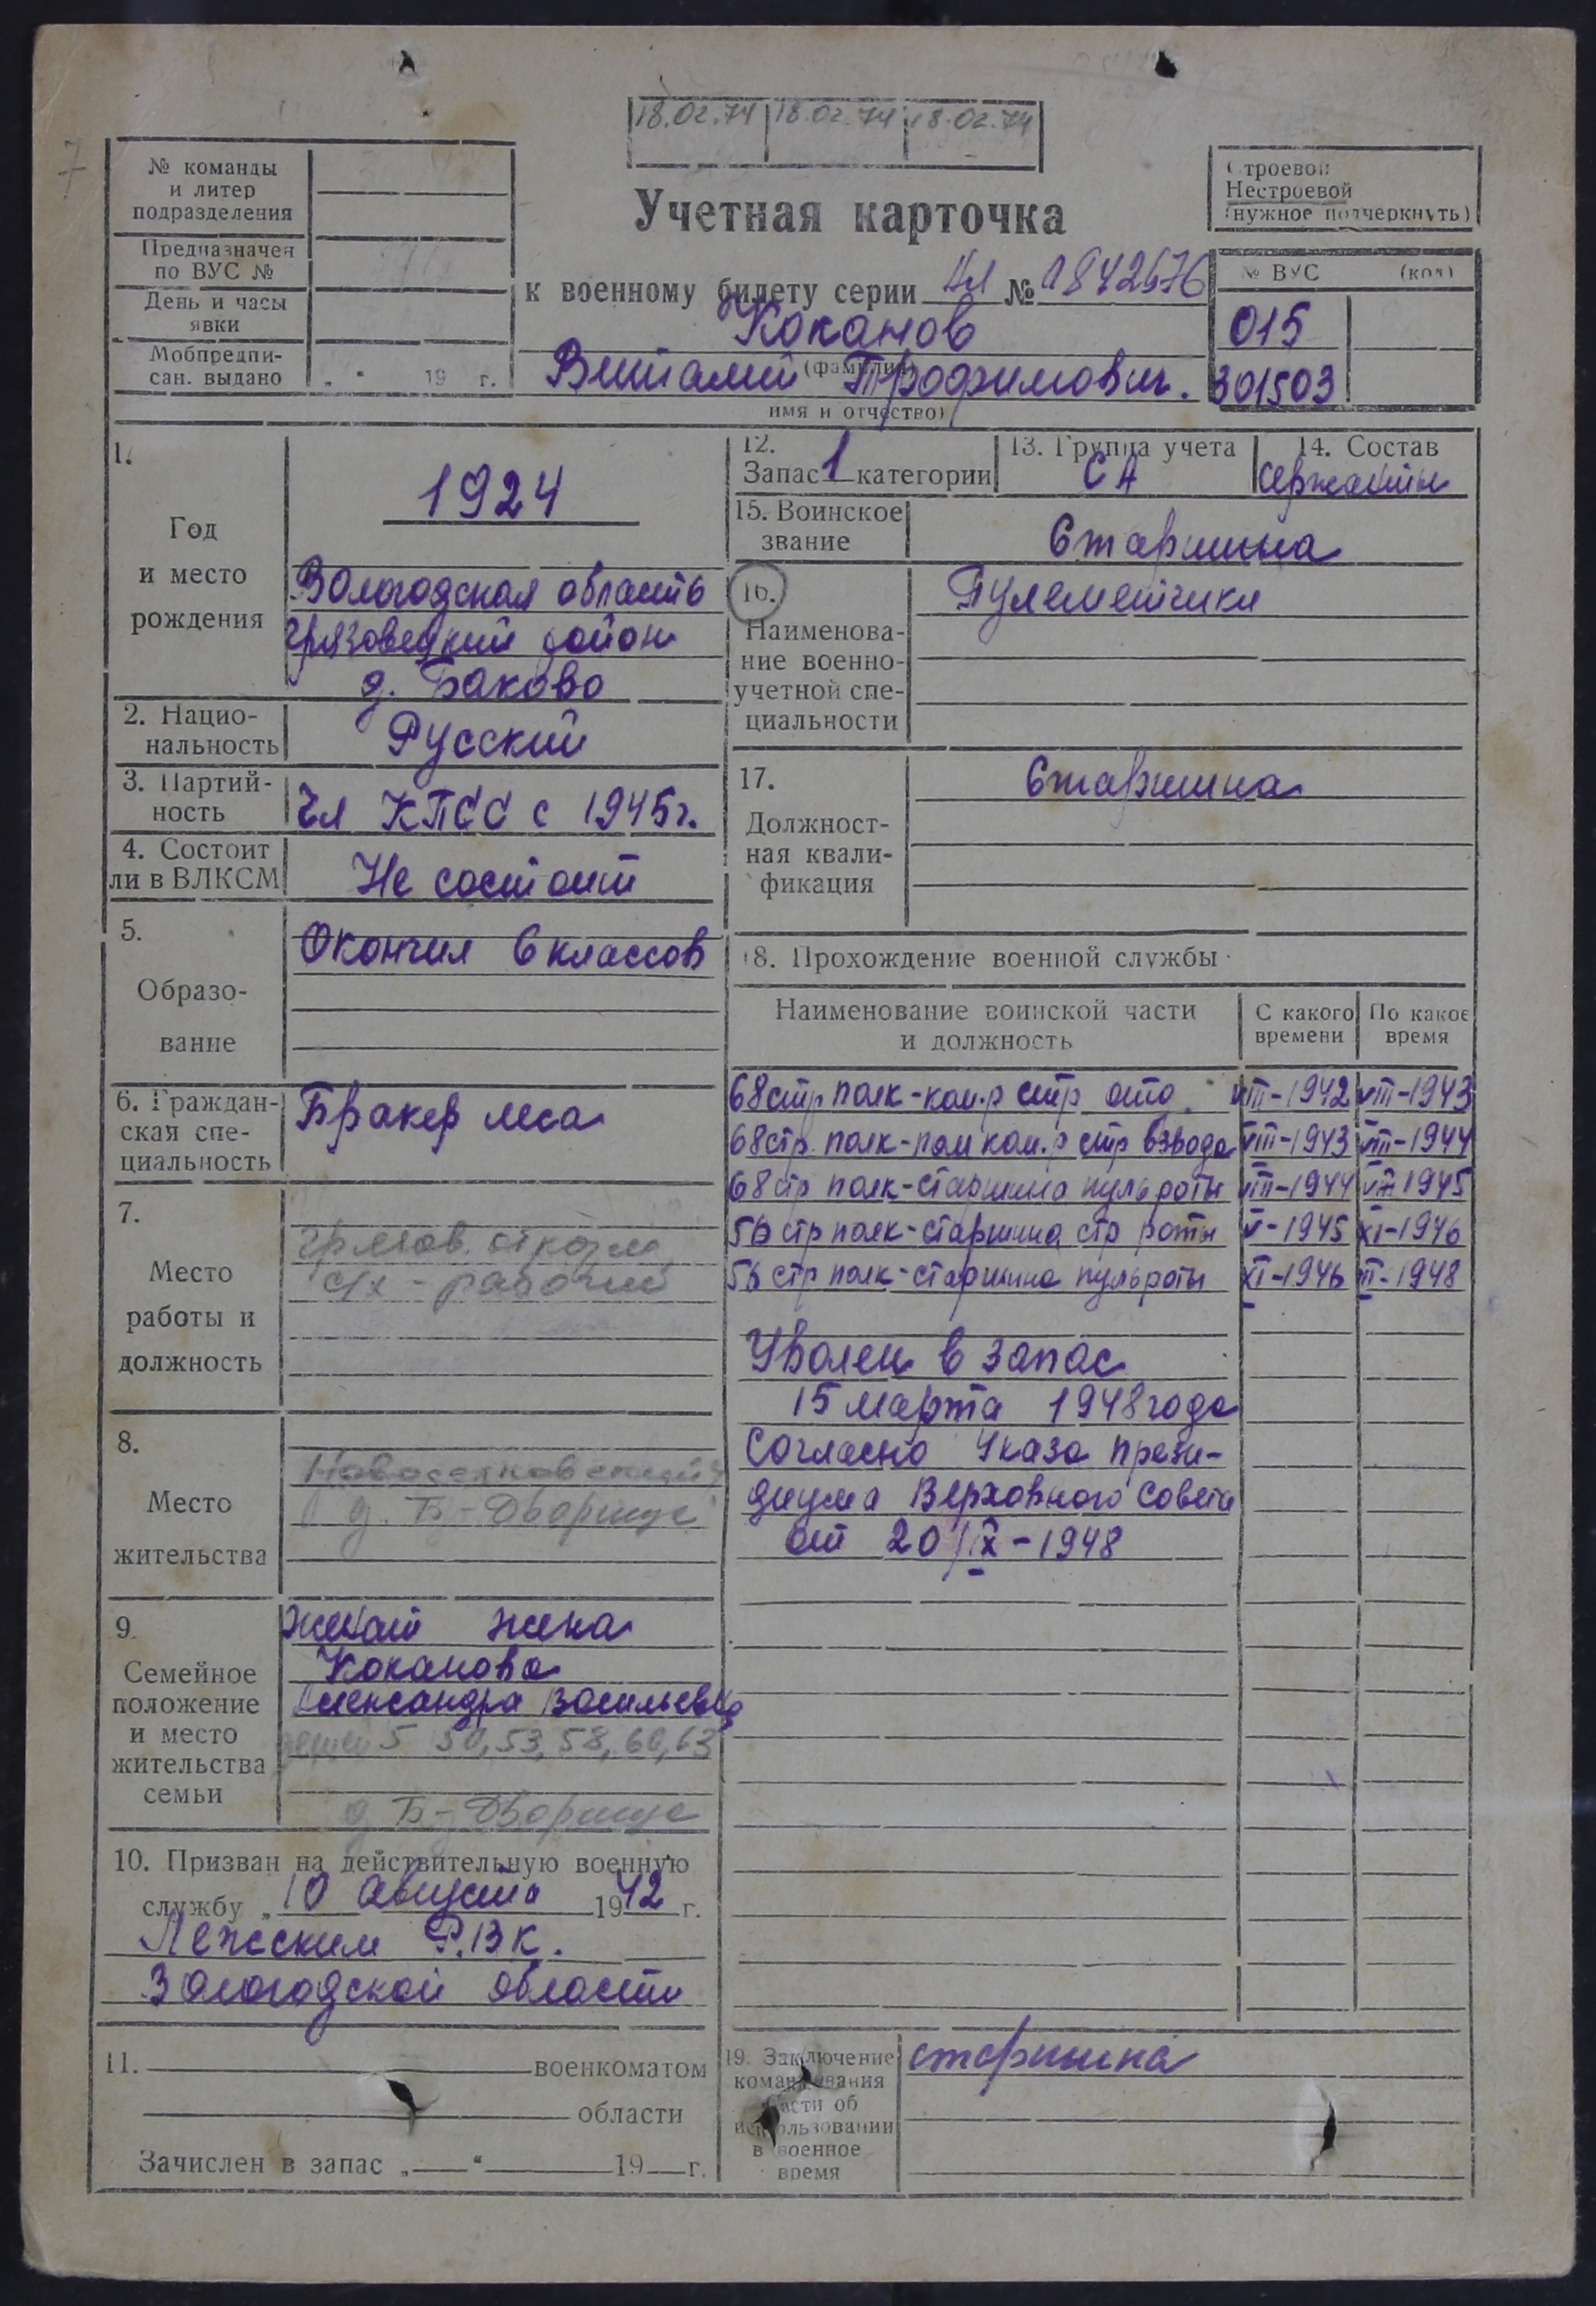 18.02.74 18.02.74 18.02.74
7
№ команды
и литер
подразделения
Предназначен
по ВУС №
День и часы
явки
Мобпредпи-
сан. выдано „ “ 19 г.
Учетная карточка
Строевой
Нестроевой
(нужное подчеркнуть)
к военному билету серии № 1842676
Коканов
(фамилия)
Виталий Трофимович.
имя и отчество)
№ ВУС (код)
015
301503
1.
Год
и место
рождения
1924
Вологодская область
Грязовецкий район
д. Баково
2. Нацио-
нальность
Русский
3. Партий-
ность
Чл КПСС с 1945г.
4. Состоит
ли в ВЛКСМ
Не состоит
5.
Образо-
вание
Окончил 6 классов
6. Граждан-
ская спе-
циальность
Бракер леса
7.
Место
работы и
должность
с/х - рабочий
8.
Место
жительства
д. Б-Дворище
9.
Семейное
положение
и место
жительства
семьи
Женат жена
Коканова
Александра Васильевна
детей 5 50, 53, 58, 60, 63
д Б-Дворище
10. Призван на действительную военную
службу „10 Августа 1942 г.
Лежским Р.В.К.
Вологодской области
11. военкоматом
области
Зачислен в запас „ “ 19 г.
12.
Запас 1 категории
13. Группа учета
СА
14. Состав
Сержанты
15. Воинское
звание
Старшина
16.
Наименова-
ние военно-
учетной спе-
циальности
Пулеметчики
17.
Должност-
ная квали-
фикация
Старшина
18. Прохождение военной службы
Наименование воинской части
и должность
С какого
времени
По какое
время
68 стр полк-ком.р стр отд. VIII-1942 VIII-1943
68 стр. полк-пом ком.р стр взвода VIII-1943 VIII-1944
68 стр полк-старшина пульроты VIII-1944 1945
56 стр полк-старшина стр роты V-1945 XI-1946
56 стр полк-старшина пульроты XI-1946 III-1948
Уволен в запас
15 марта 1948 года
Согласно Указа прези-
диума Верховного Совета
от 20/IX-1948
19. Заключение
командования
части об
использовании
в военное
время
старшина